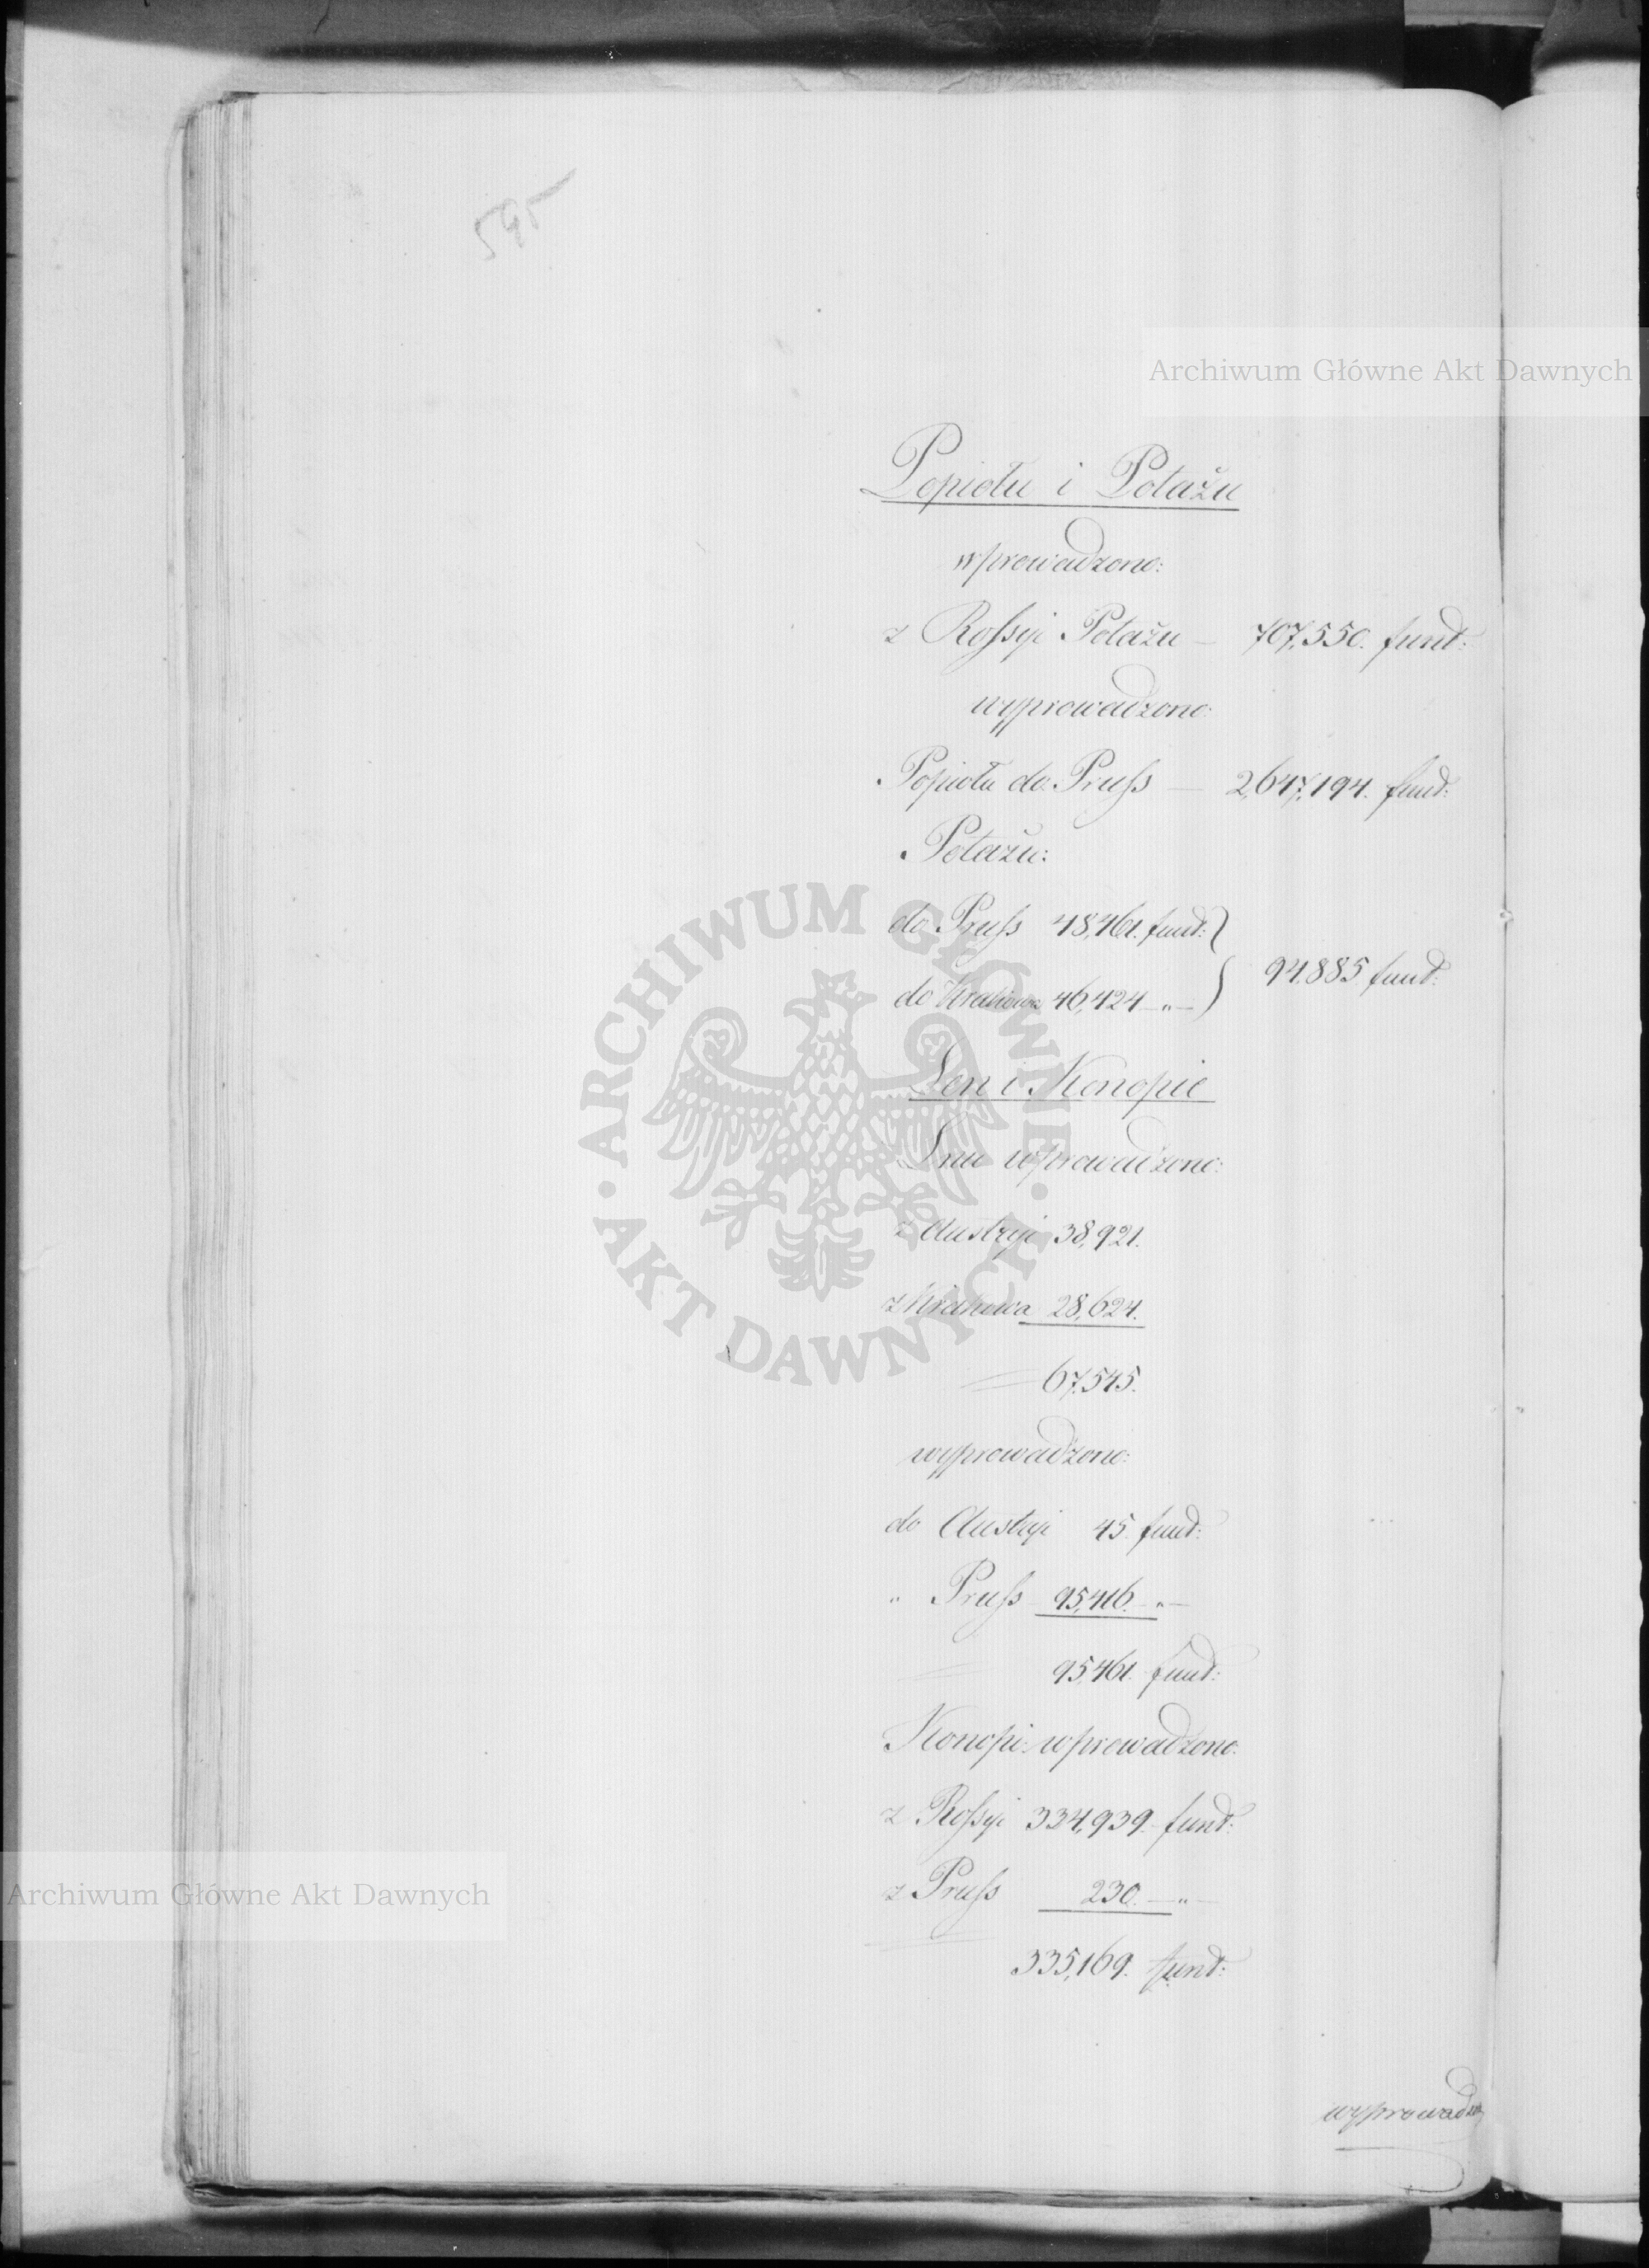 595
Archiwum Główne Akt Dawnych
Popiołu i Potażu
wprowadzono:
z Rossyi Potażu — 707,550. funt:
wyprowadzono:
Popiołu do Pruss — 2,647,194. funt:
Potażu:
do Pruss 48,461. funt: }
94,885 funt:
do Krakowa 46,424 — " — }
Len i Konopie
Lnu wprowadzono:
z Austryi 38,921.
z Krakowa 28,624.
67,545.
wyprowadzono:
do Austryi 45. funt:
" Pruss 95,416. " —
95,461. funt:
Konopi wprowadzono:
z Rossyi 334,939. funt:
z Pruss 230. — " —
335,169. funt:
wyprowadzo
ARCHIWUM GŁÓWNE
AKT DAWNYCH
Archiwum Główne Akt Dawnych